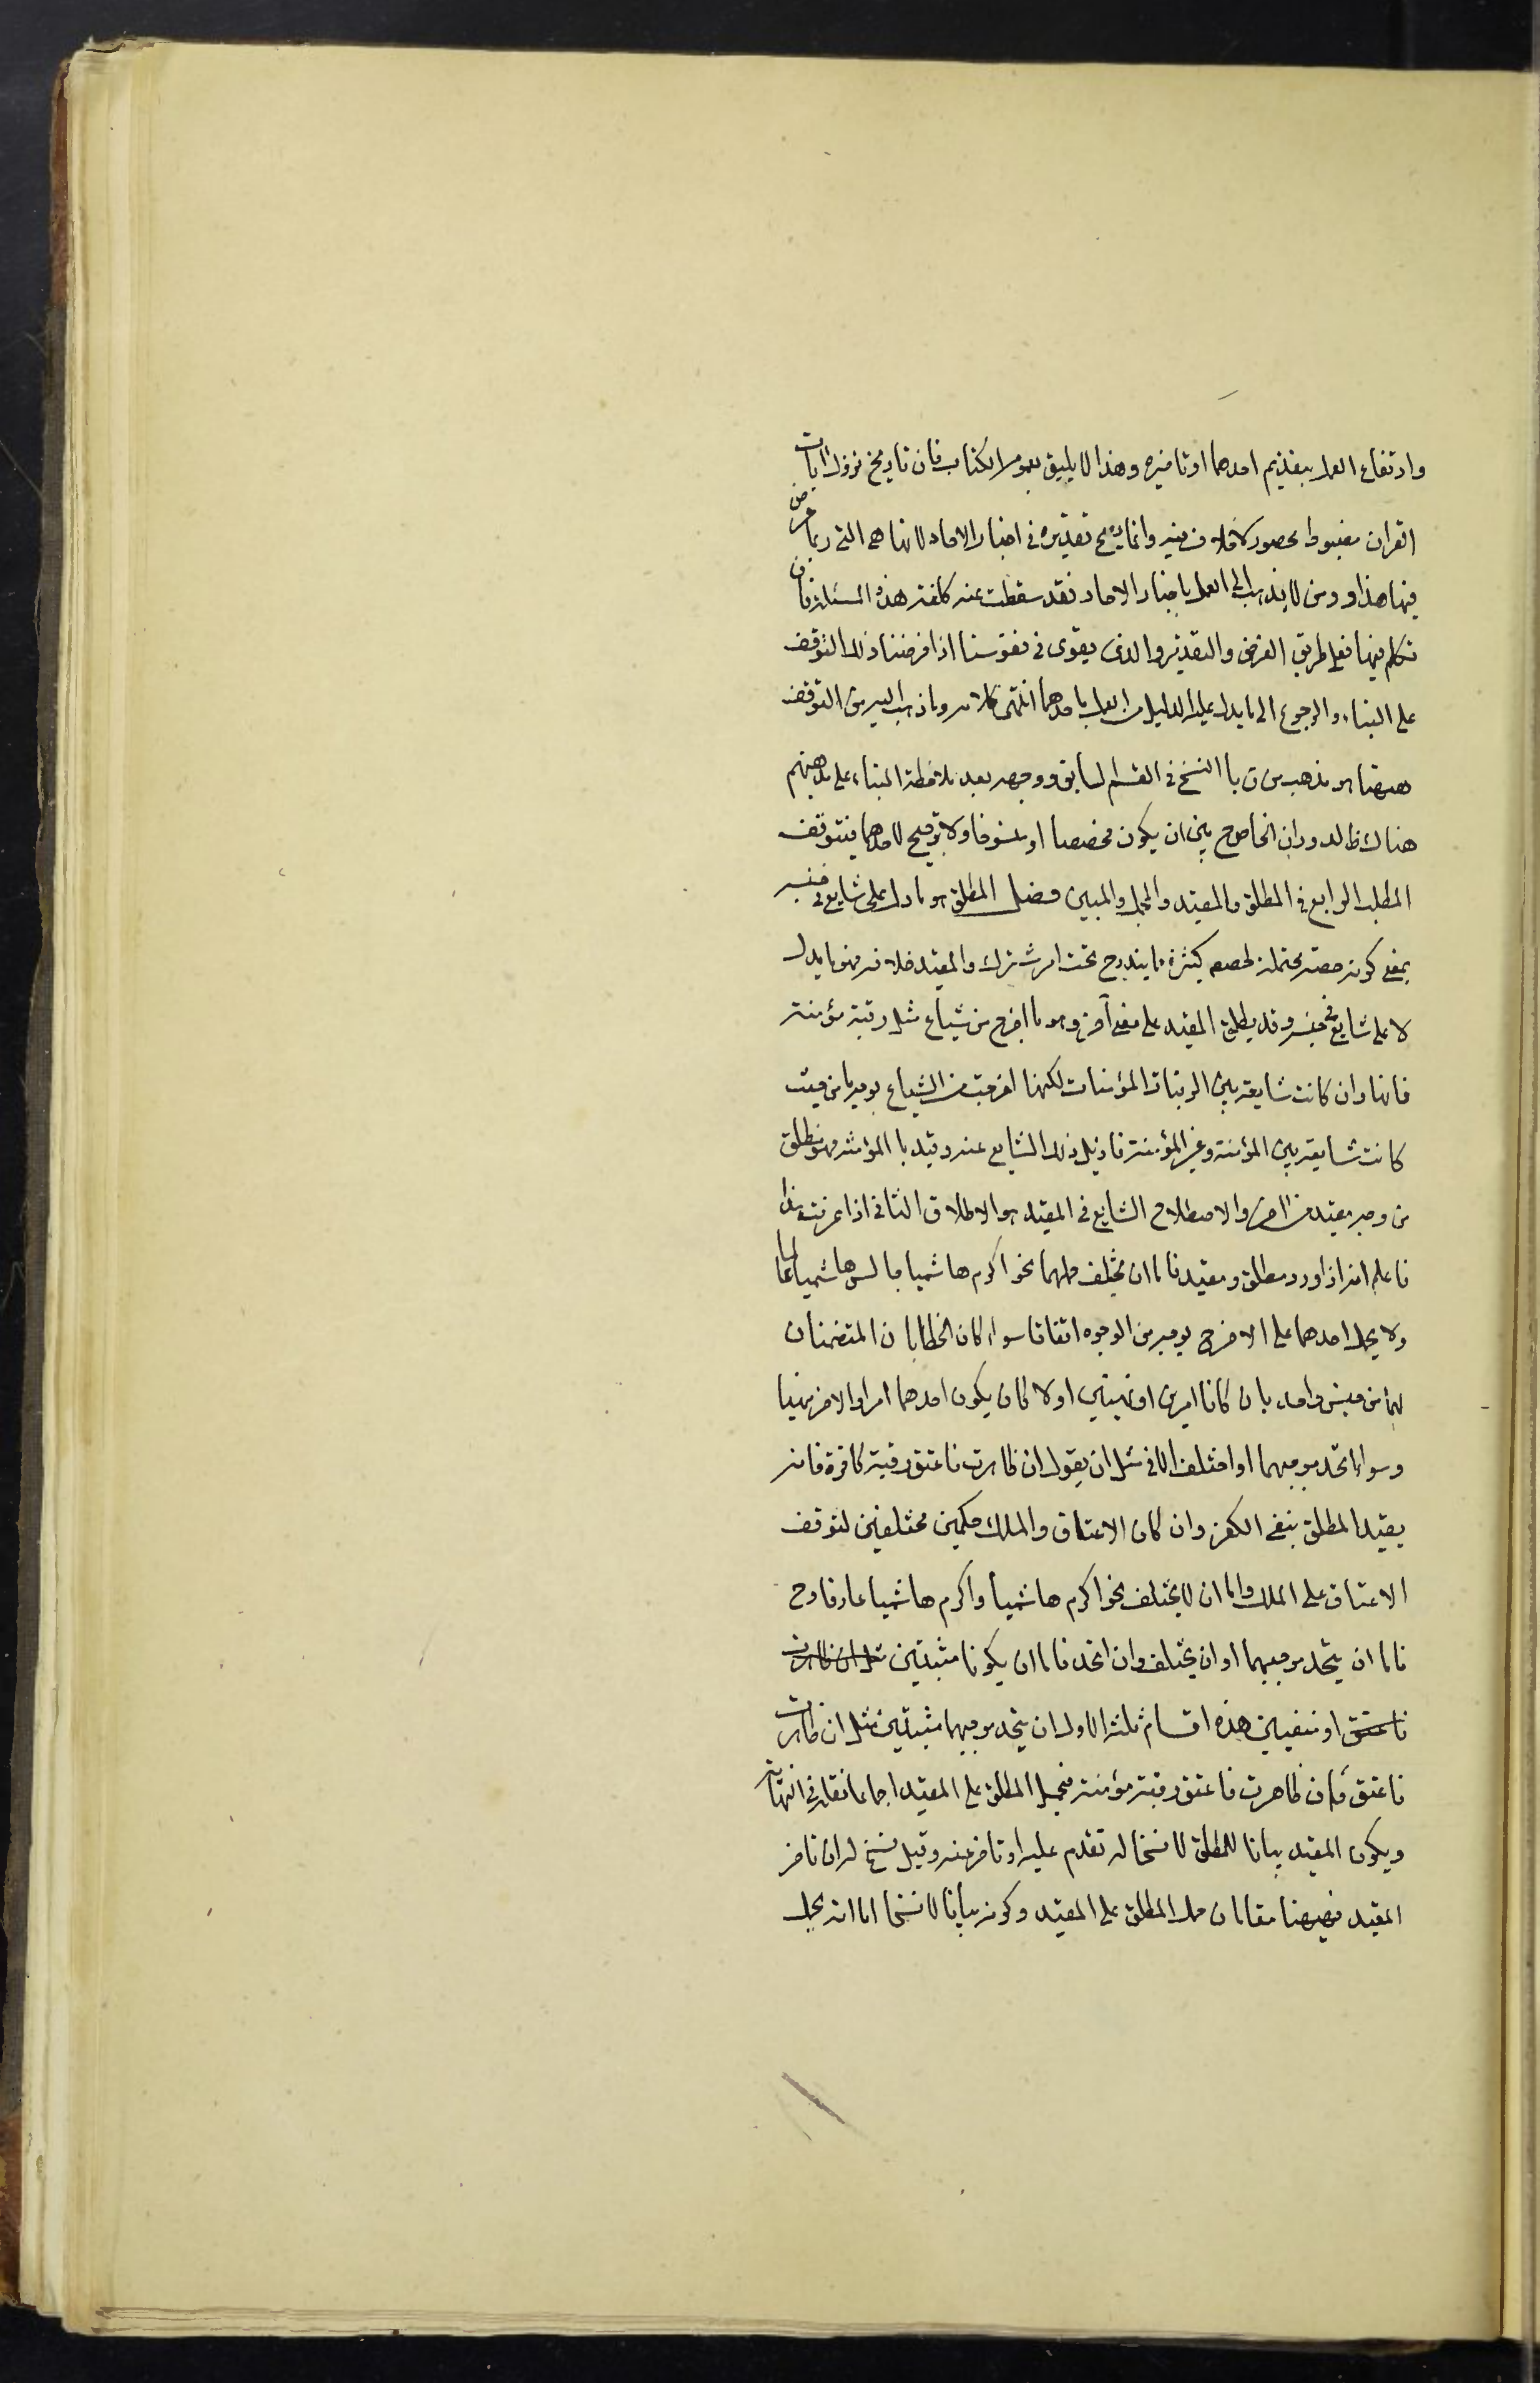 وارتفاع العلم بتقديم احدهما او تاخيره وهذا لا يليق بعموم الكتاب فان تاريخ نزول ايات
القران مضبوط محصور لا خلاف فيه وانما يصح تقديره في اخبار الاحاد لانها هي التي ربما عرض
فيها هذا ومن لا يذهب الى العمل باخبار الاحاد فقد سقطت عنه كلفة هذه المسئلة فان
تكلم فيها فعلى طريق الفرض والتقدير والذي يقوى في نفوسنا اذا فرضنا ذلك التوقف
على البناء والرجوع الى ما يدل عليه الدليل من العمل باحدهما انتهى كلامه وما ذهب اليه من التوقف
ههنا هو مذهب من ق با النسخ في القسم السابق ووجهه بعد ملاحظة البناء على مذهبهم
هناك ظ لدوران الخاص ح بين ان يكون مخصصا او منسوخا ولا ترجيح لاحدهما فيتوقف
المطلب الرابع في المطلق والمقيد والمجمل والمبين فصل المطلق هو ما دل على شايع في جنسه
بمعنى كونه حصة محتملة لحصص كثيرة مما يندرج تحت امر مشترك والمقيد خلافه فهو ما يدل
لا على شايع في جنسه وقد يطلق المقيد على معنى آخر وهو ما اخرج من شياع مثل رقبة مؤمنة
فانها وان كانت شايعة بين الرقبات المؤمنات لكنها اخرجت من الشياع بوجه ما من حيث
كانت شايعة بين المؤمنة وغير المؤمنة فازيل ذلك الشايع عنه وقيد با المؤمنة فهو مطلق
من وجه مقيد من اخر والاصطلاح الشايع في المقيد هو الاطلاق الثاني اذا عرفت هذا
فاعلم انه اذا ورد مطلق ومقيد فاما ان يختلف حكمهما نحو اكرم هاشميا جالس هاشميا عالما
ولا يحمل احدهما على الاخر ح بوجه من الوجوه اتفاقا سواء كان الخطابان المتضمنان
لهما من جنس واحد بان كانا امرين او نهيين او لا كان يكون احدهما امرا والاخر نهيا
وسواء اتحد موجبهما او اختلف الا في مثل ان يقول ان ظاهرت فاعتق رقبة كافرة فانه
يقيد المطلق بنفي الكفر وان كان الاعتاق والملك حكمين مختلفين لتوقف
الاعتاق على الملك واما ان لا يختلف نحو اكرم هاشميا واكرم هاشميا عارفا وح
فاما ان يتحد موجبهما او ان يختلف وان اتحد فاما ان يكونا مثبتين مثل ان ظاهرت
فاعتق او منفيين هذه اقسام ثلثة الاول ان يتحد موجبهما مثبتين مثل ان ظاهرت
فاعتق فان ظاهرت فاعتق رقبة مؤمنة فيحمل المطلق على المقيد اجماعا نقله في النهاية
ويكون المقيد بيانا للمطلق لا نسخا له تقدم عليه او تاخر عنه وقيل نسخ له ان تاخر
المقيد فههنا مقامان حمل المطلق على المقيد وكونه بيانا لا نسخا اما انه يحمل